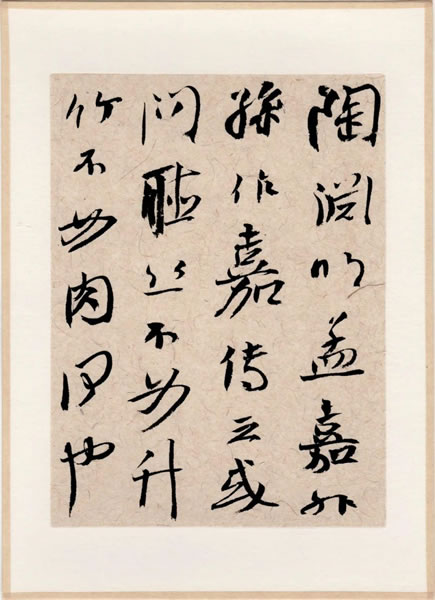 陶淵明孟嘉外
孫作嘉傳云或
問聽絲不如竹
竹不如肉何也